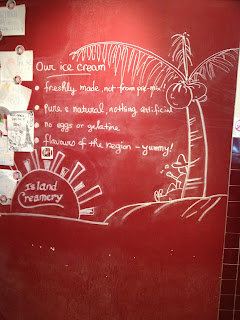 Our ice cream
• freshly made, not from pre-mix
• pure & natural, nothing artificial
• no eggs or gelatine
• flavours of the region - yummy!
Island
Creamery